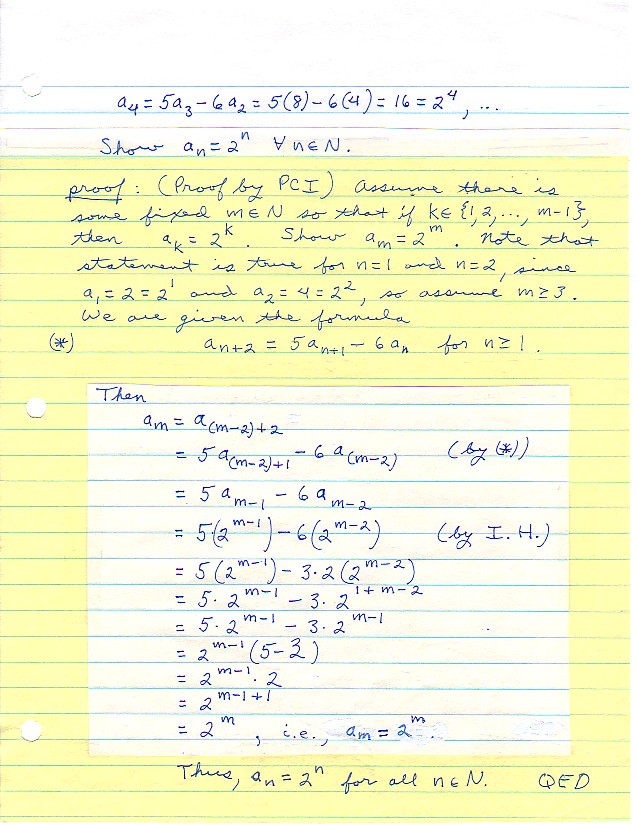 a₄ = 5a₃ - 6a₂ = 5(8) - 6(4) = 16 = 2⁴, ...
Show aₙ = 2ⁿ ∀ n ∈ N.
proof: (Proof by PCI) Assume there is
some fixed m ∈ N so that if k ∈ {1, 2, ..., m-1},
then a_k = 2^k. Show a_m = 2^m. Note that
statement is true for n=1 and n=2, since
a₁ = 2 = 2¹ and a₂ = 4 = 2², so assume m ≥ 3.
We are given the formula
(*) a_{n+2} = 5a_{n+1} - 6a_n for n ≥ 1.
Then
a_m = a_{(m-2)+2}
= 5a_{(m-2)+1} - 6a_{(m-2)} (by (*))
= 5a_{m-1} - 6a_{m-2}
= 5·(2^{m-1}) - 6(2^{m-2}) (by I.H.)
= 5(2^{m-1}) - 3·2(2^{m-2})
= 5·2^{m-1} - 3·2^{1+m-2}
= 5·2^{m-1} - 3·2^{m-1}
= 2^{m-1}(5-3)
= 2^{m-1}·2
= 2^{m-1+1}
= 2^m, i.e., a_m = 2^m.
Thus, aₙ = 2ⁿ for all n ∈ N. QED